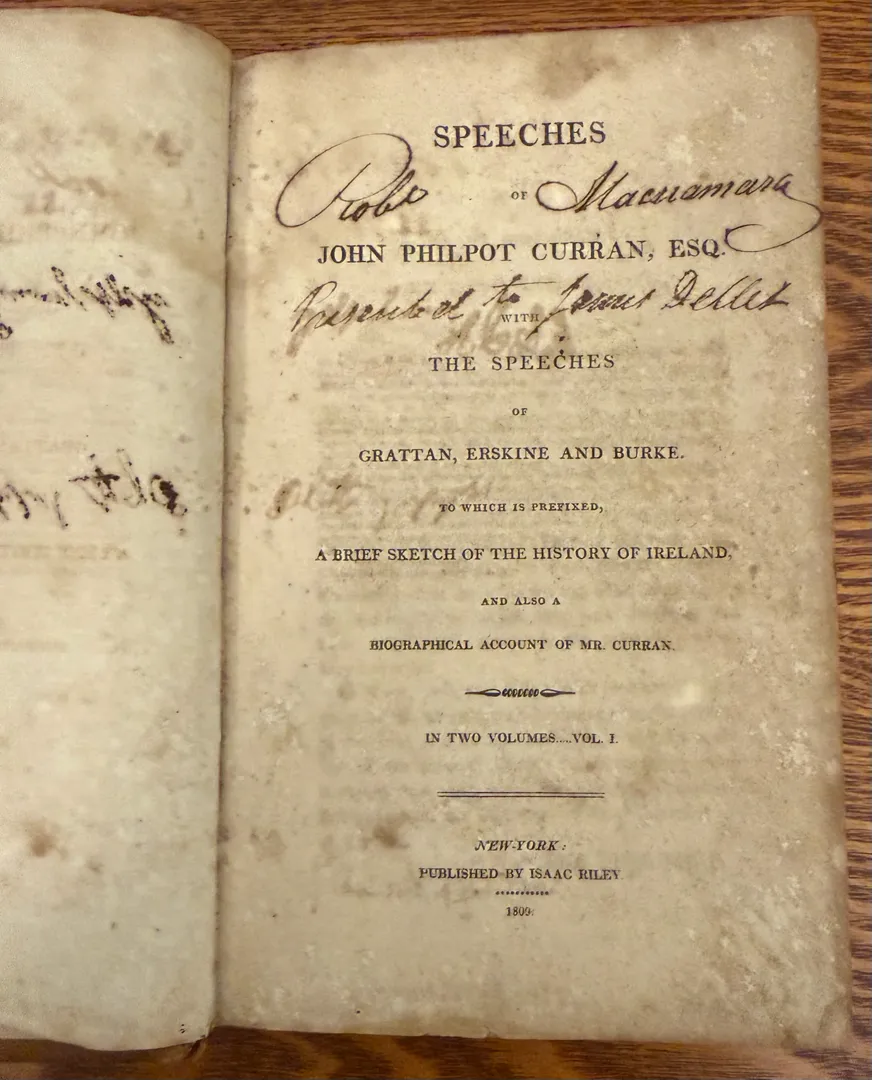 SPEECHES
Robt OF Macnamara
JOHN PHILPOT CURRAN, ESQ.
Presented to James Dellet
WITH
THE SPEECHES
OF
GRATTAN, ERSKINE AND BURKE.
TO WHICH IS PREFIXED,
A BRIEF SKETCH OF THE HISTORY OF IRELAND,
AND ALSO A
BIOGRAPHICAL ACCOUNT OF MR. CURRAN.
IN TWO VOLUMES.....VOL. I.
NEW-YORK:
PUBLISHED BY ISAAC RILEY
1809.